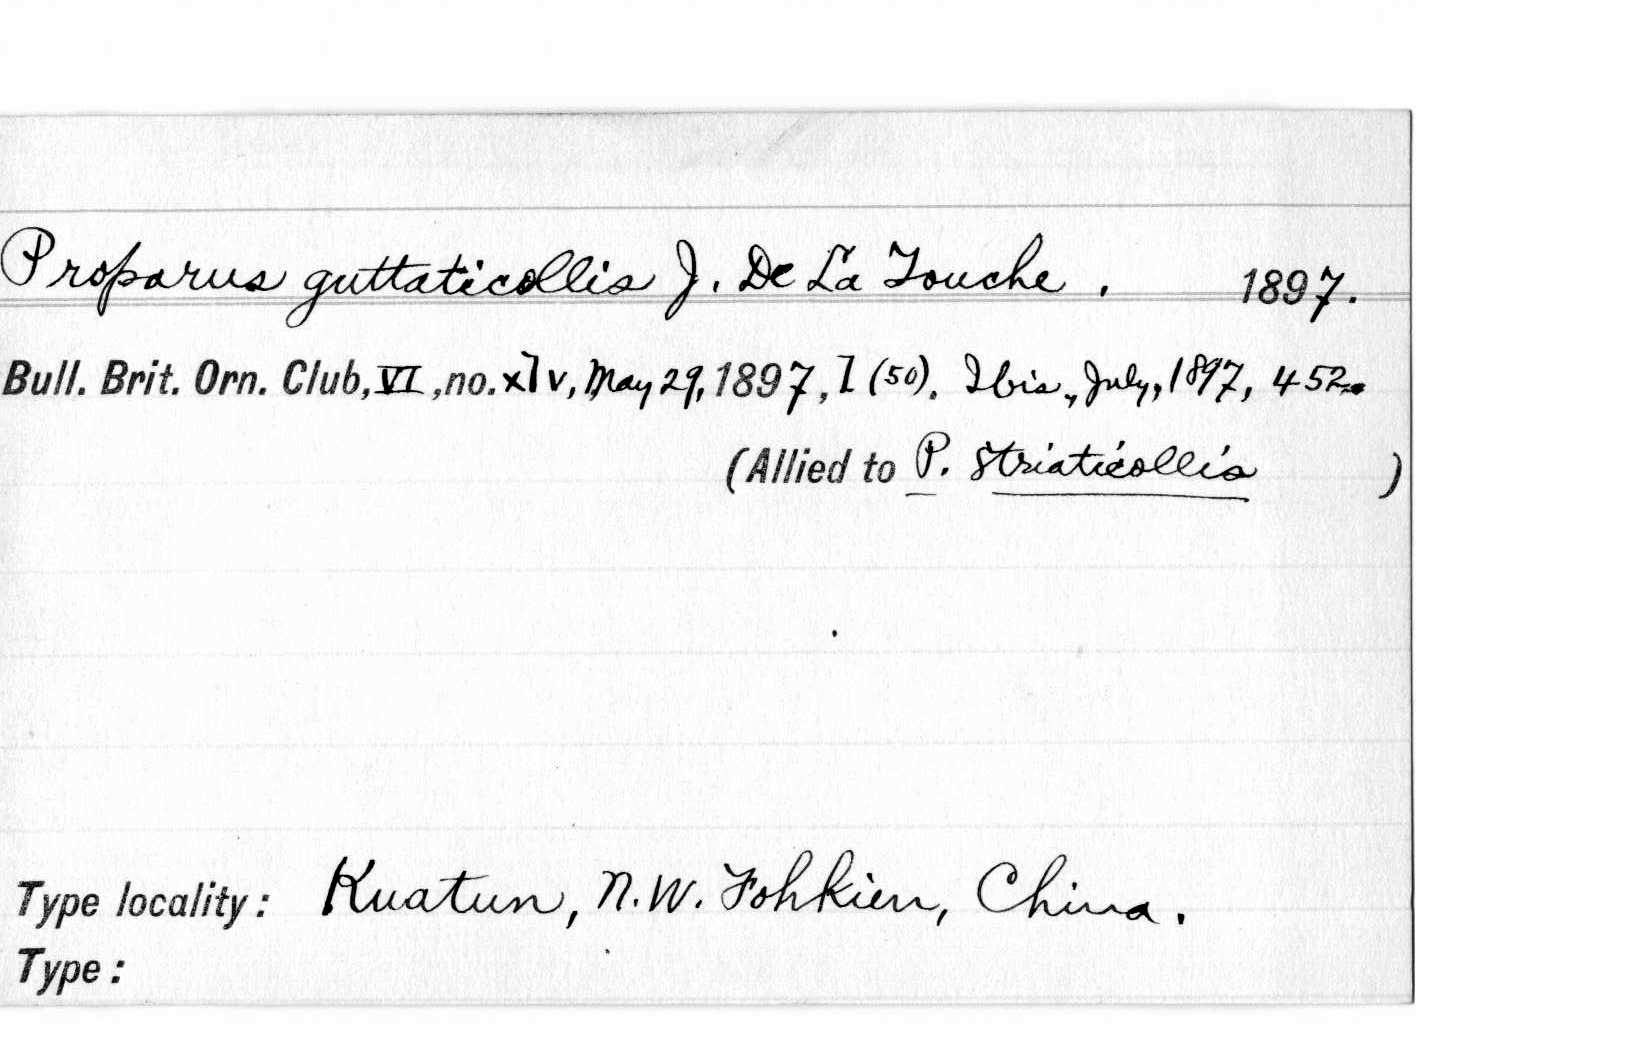 Proparus guttaticollis J. De La Touche. 1897.
Bull. Brit. Orn. Club, VI, no. xlv, May 29, 1897, l (50). Ibis, July, 1897, 452.
(Allied to P. striaticollis )
Type locality: Kuatun, N.W. Fohkien, China.
Type: